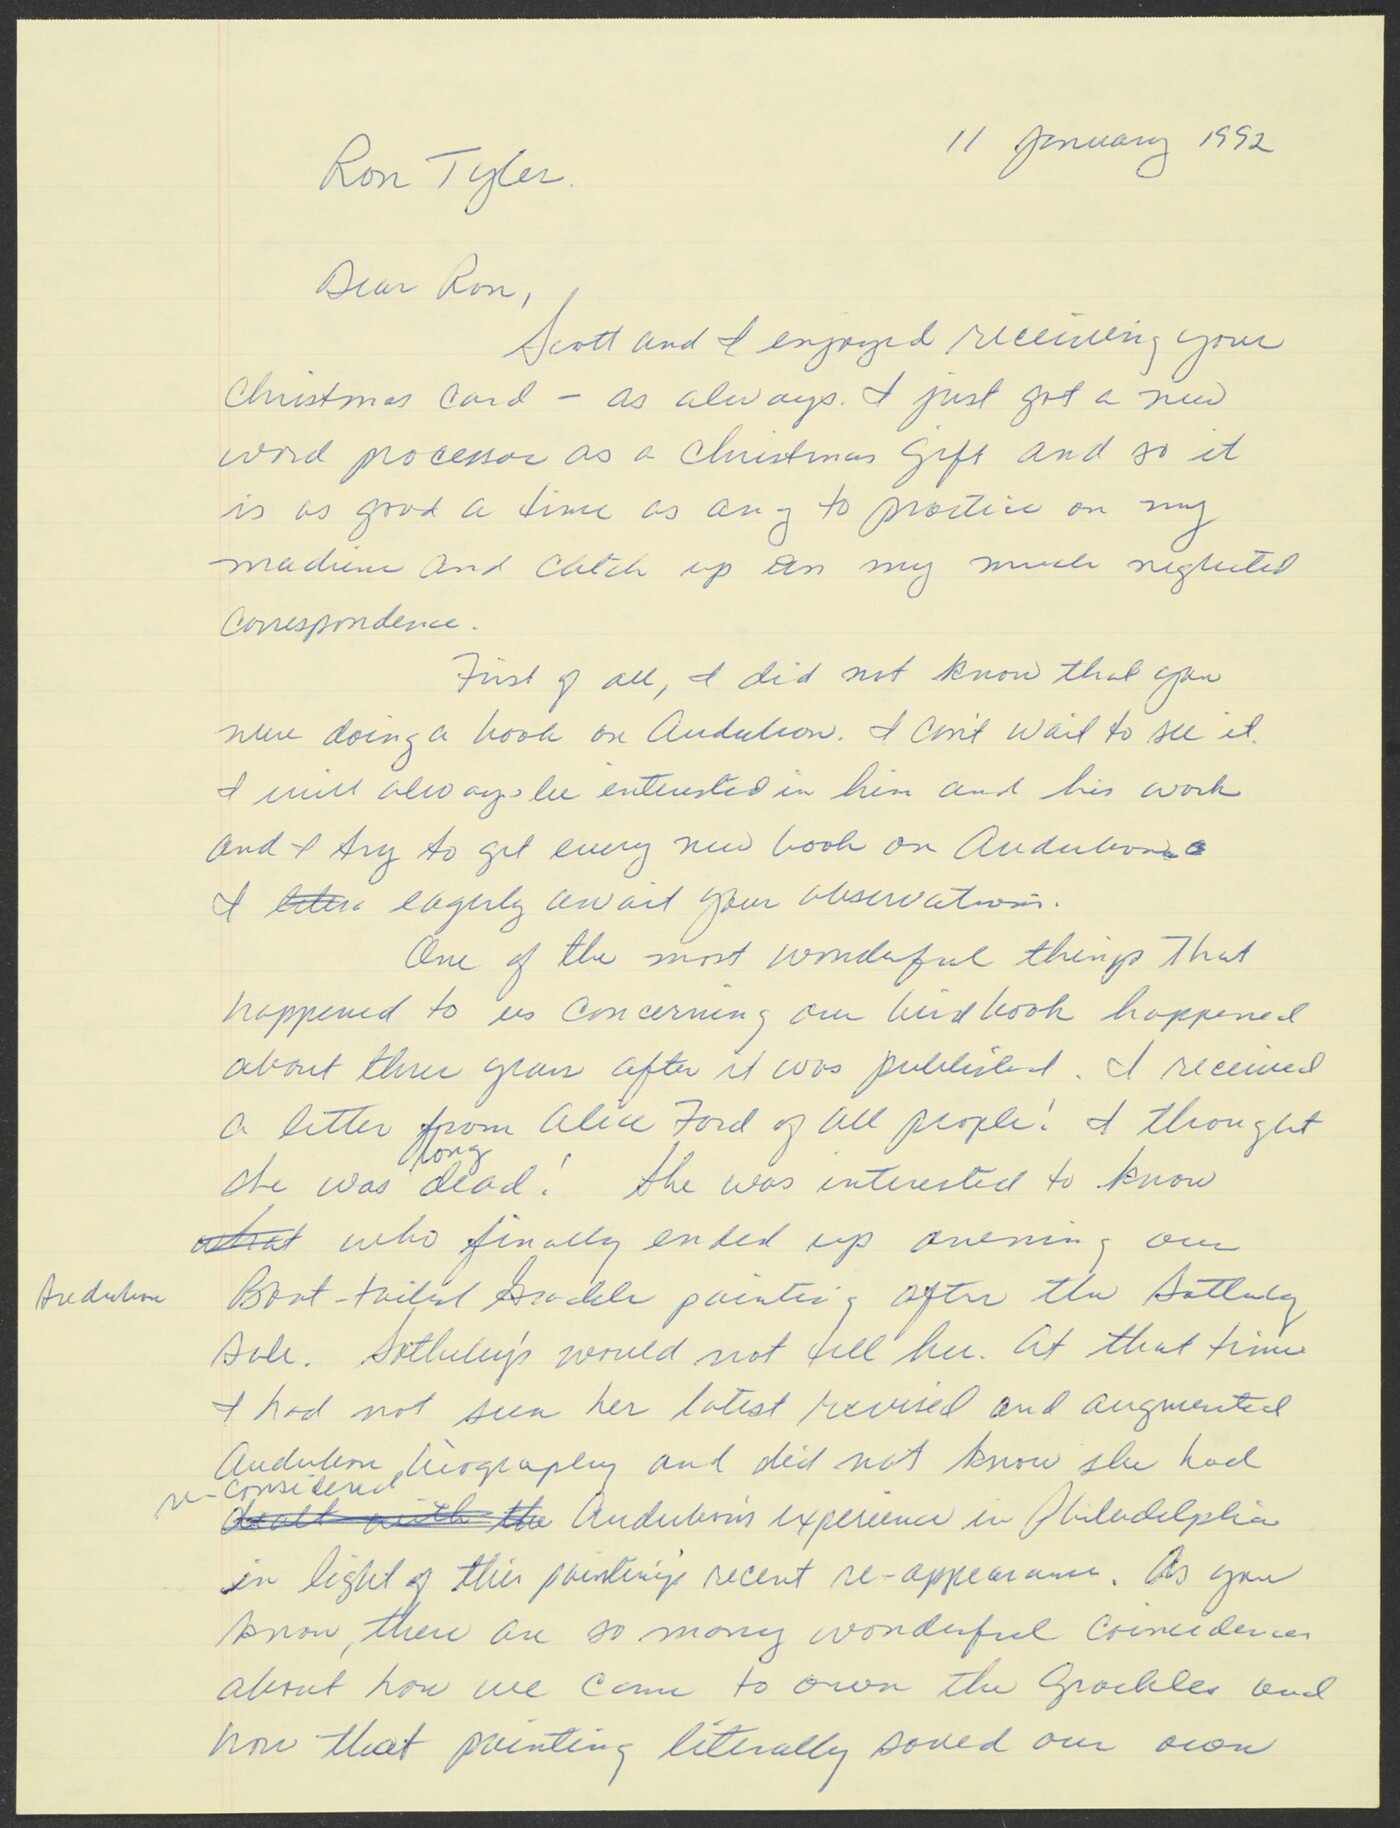 11 January 1992
Ron Tyler.
Dear Ron,
Scott and I enjoyed receiving your
Christmas card - as always. I just got a new
word processor as a Christmas gift and so it
is as good a time as any to practice on my
machine and catch up on my much neglected
correspondence.
First of all, I did not know that you
were doing a book on Audubon. I can't wait to see it.
I will always be interested in him and his work
and I try to get every new book on Audubon.
I eagerly await your observations.
One of the most wonderful things that
happened to us concerning our bird book happened
about three years after it was published. I received
a letter from Alice Ford of all people! I thought
long
she was dead! She was interested to know
what who finally ended up owning our
Audubon Boat-tailed Grackle painting after the Sotheby
sale. Sotheby's would not tell her. At that time
I had not seen her latest revised and augmented
Audubon biography and did not know she had
re-considered
dealt with the Audubon's experience in Philadelphia
in light of this painting's recent re-appearance. As you
know, there are so many wonderful coincidences
about how we came to own the Grackles and
how that painting literally saved our own